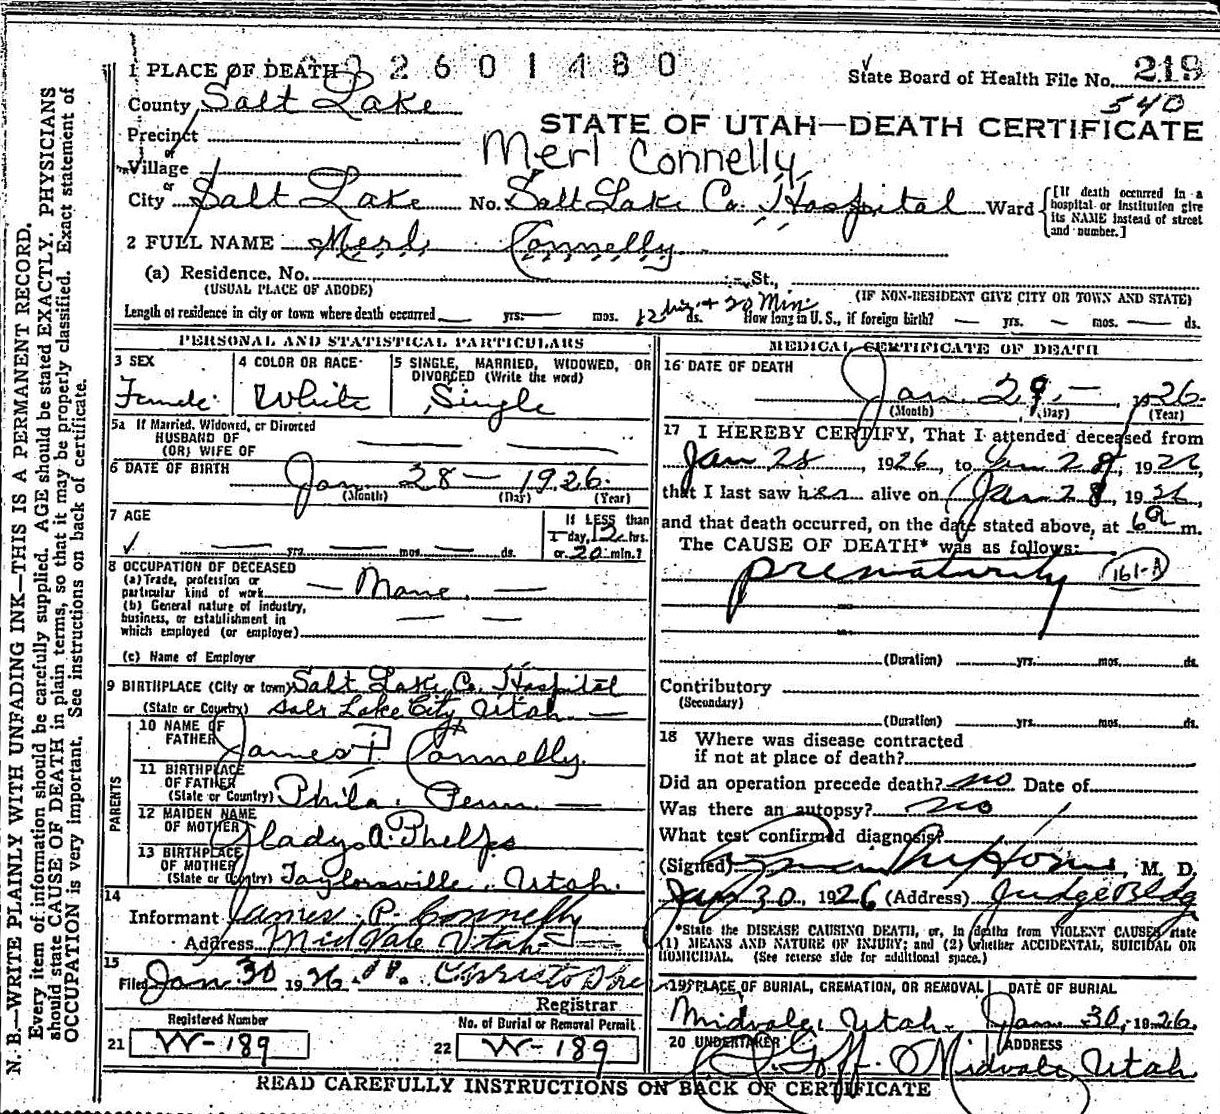 1 PLACE OF DEATH 2601480
State Board of Health File No. 219
County Salt Lake 540
STATE OF UTAH—DEATH CERTIFICATE
Precinct
or
Village
Merl Connelly
or
City Salt Lake No. Salt Lake Co. Hospital Ward [If death occurred in a hospital or institution give its NAME instead of street and number.]
2 FULL NAME Merl Connelly
(a) Residence, No. St.,
(USUAL PLACE OF ABODE) (IF NON-RESIDENT GIVE CITY OR TOWN AND STATE)
Length of residence in city or town where death occurred — yrs. — mos. 12 hrs + 20 Min. ds. How long in U. S., if foreign birth? — yrs. — mos. — ds.
PERSONAL AND STATISTICAL PARTICULARS
3 SEX
Female
4 COLOR OR RACE
White
5 SINGLE, MARRIED, WIDOWED, OR DIVORCED (Write the word)
Single
5a If Married, Widowed, or Divorced
HUSBAND OF
(OR) WIFE OF
6 DATE OF BIRTH
Jan. 28 — 1926.
(Month) (Day) (Year)
7 AGE
✓ — yrs. — mos. — ds.
If LESS than
1 day, 12 hrs.
or 20 min.?
8 OCCUPATION OF DECEASED
(a) Trade, profession or
particular kind of work — None. —
(b) General nature of industry,
business, or establishment in
which employed (or employer)
(c) Name of Employer
9 BIRTHPLACE (City or town) Salt Lake Co. Hospital
(State or Country) Salt Lake City Utah. —
PARENTS
10 NAME OF
FATHER James P. Connelly.
11 BIRTHPLACE
OF FATHER
(State or Country) Phila. Penn. —
12 MAIDEN NAME
OF MOTHER Gladys A. Phelps
13 BIRTHPLACE
OF MOTHER
(State or Country) Taylorsville, Utah.
14
Informant James P. Connelly
Address Midvale Utah
15
Filed Jan 30 1926
Registrar
21 Registered Number
W-189
22 No. of Burial or Removal Permit
W-189
MEDICAL CERTIFICATE OF DEATH
16 DATE OF DEATH
Jan. 29, — 1926.
(Month) (Day) (Year)
17 I HEREBY CERTIFY, That I attended deceased from
Jan 28, 1926, to Jan 28, 1926,
that I last saw her alive on Jan 28, 1926,
and that death occurred, on the date stated above, at 6a m.
The CAUSE OF DEATH* was as follows:
prematurity 161-A
(Duration) yrs. mos. ds.
Contributory
(Secondary)
(Duration) yrs. mos. ds.
18 Where was disease contracted
if not at place of death?
Did an operation precede death? no Date of
Was there an autopsy? no
What test confirmed diagnosis?
(Signed) M. D.
Jan 30, 1926 (Address) Judge Bldg
*State the DISEASE CAUSING DEATH, or, in deaths from VIOLENT CAUSES, state
(1) MEANS AND NATURE OF INJURY; and (2) whether ACCIDENTAL, SUICIDAL OR
HOMICIDAL. (See reverse side for additional space.)
19 PLACE OF BURIAL, CREMATION, OR REMOVAL
Midvale, Utah.
DATE OF BURIAL
Jan. 30, 1926.
20 UNDERTAKER Goff.
ADDRESS
Midvale, Utah
READ CAREFULLY INSTRUCTIONS ON BACK OF CERTIFICATE
N. B.—WRITE PLAINLY WITH UNFADING INK—THIS IS A PERMANENT RECORD.
Every item of information should be carefully supplied. AGE should be stated EXACTLY. PHYSICIANS
should state CAUSE OF DEATH in plain terms, so that it may be properly classified. Exact statement of
OCCUPATION is very important. See instructions on back of certificate.